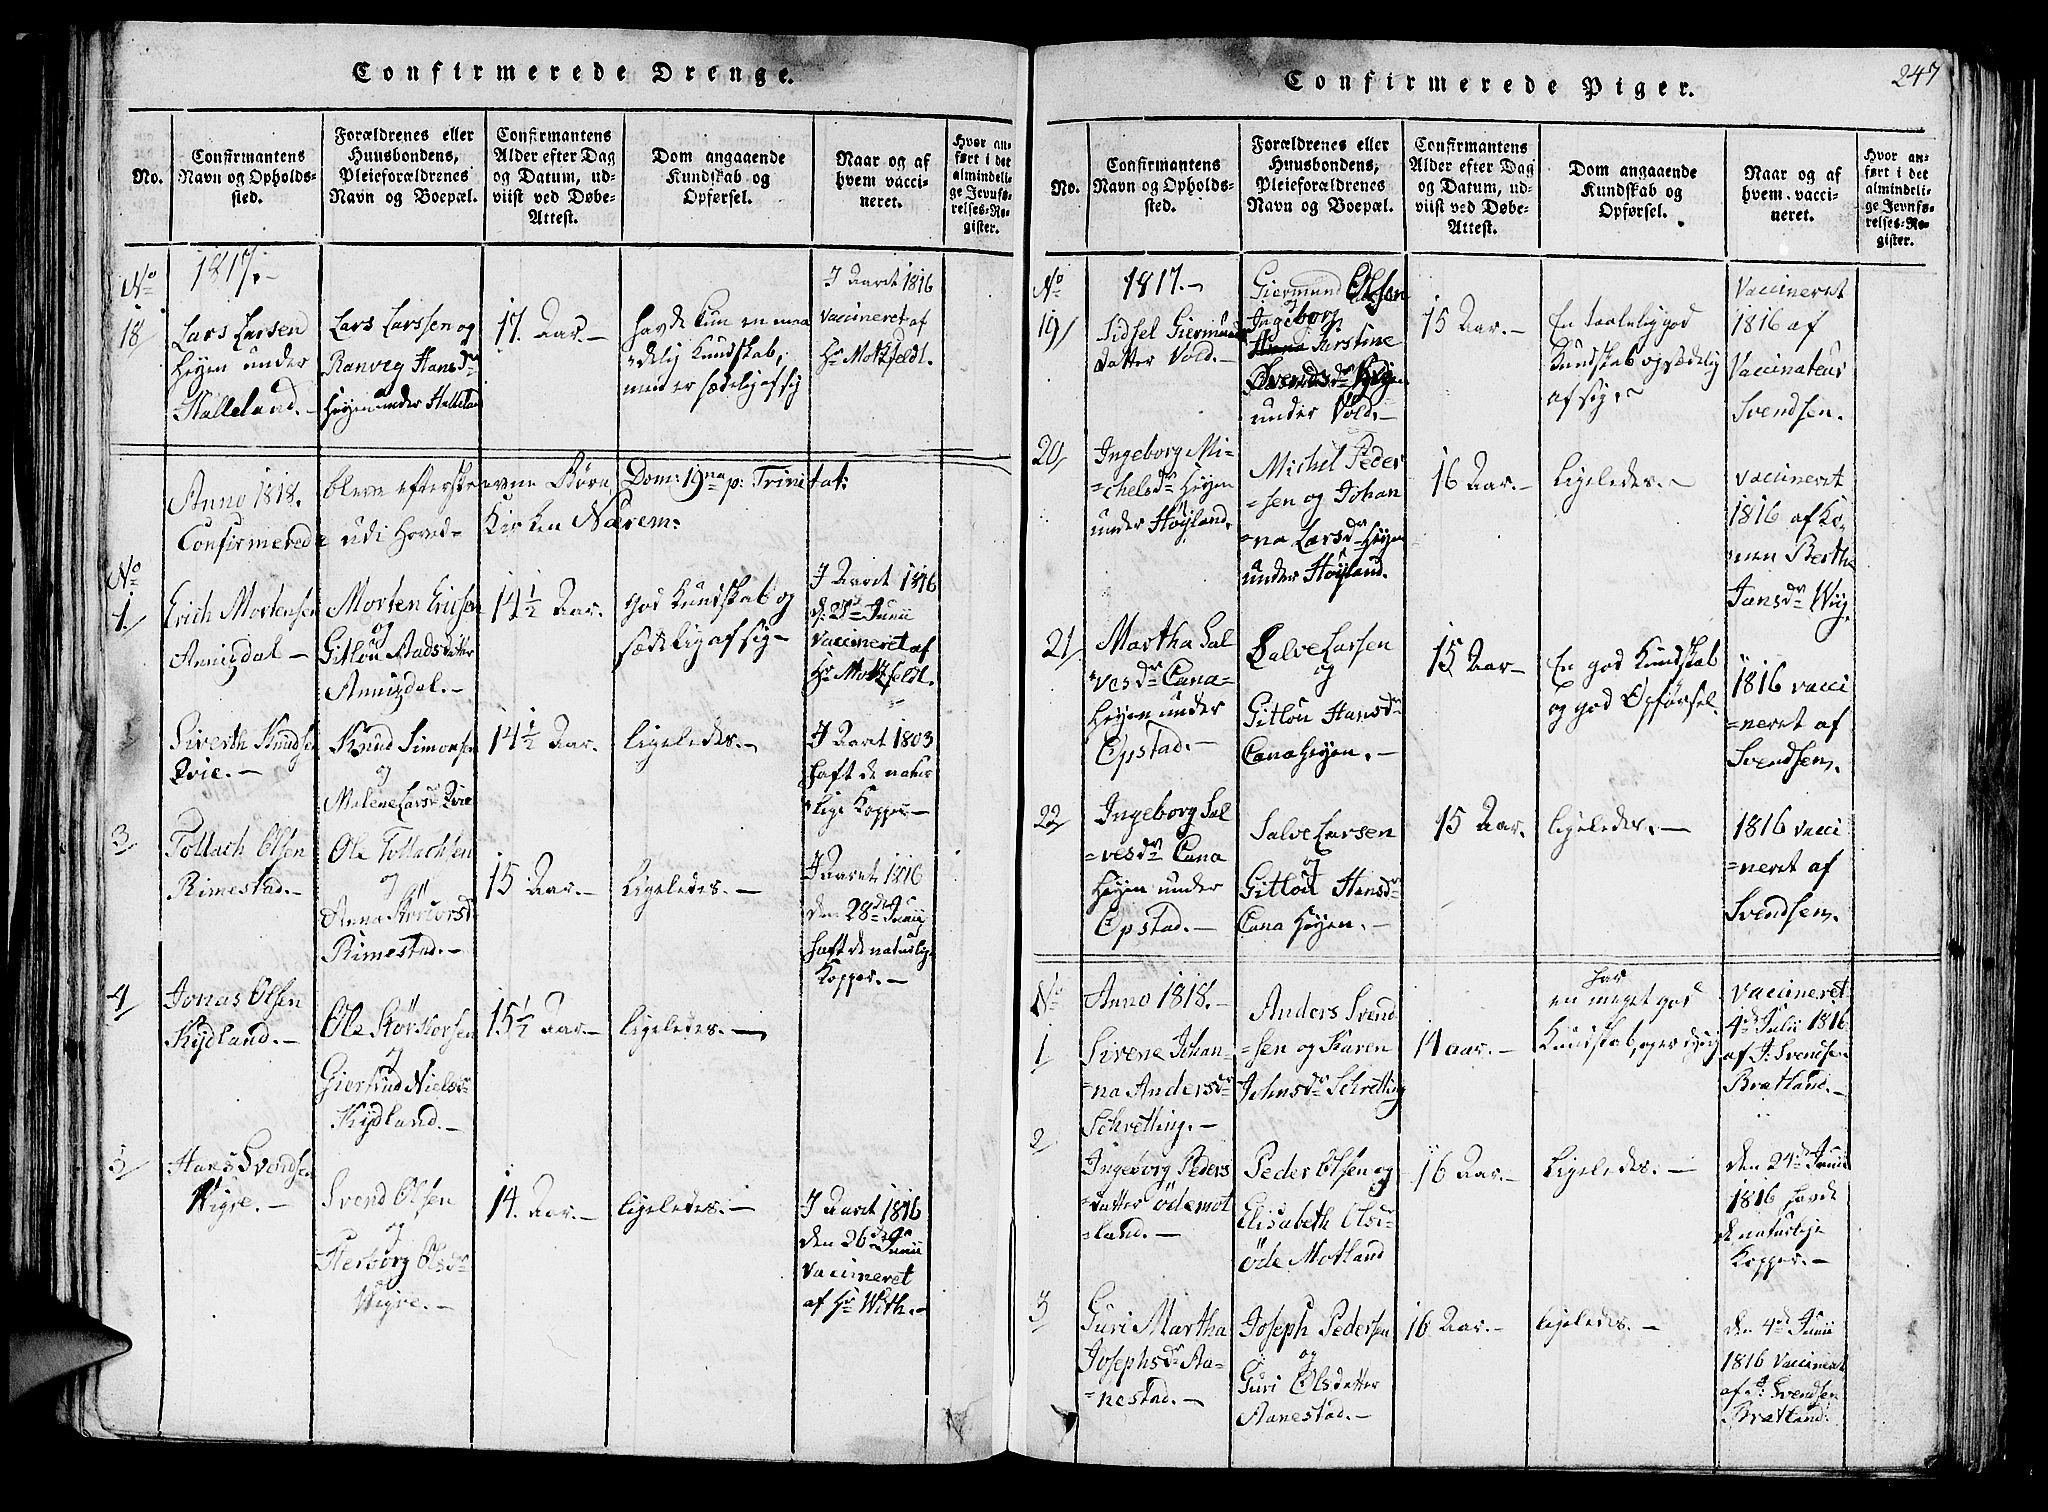 Confirmerede Drenge.
No.
Confirmantens
Navn og Opholds-
sted.
Forældrenes eller
Huusbondens,
Pleieforældrenes
Navn og Boepæl.
Confirmantens
Alder efter Dag
og Datum, ud-
viist ved Døbe-
Attest.
Dom angaaende
Kundskab og
Opførsel.
Naar og af
hvem vacci-
neret.
Hvor an-
ført i det
almindeli-
ge Jevnfø-
relses-Re-
gister.
No
1817.-
18
Lars Larsen
Heyen under
Halleland.-
Lars Larssen og
Ranveg Hansdr
Heyen under Halleland
17. Aar.-
havde kun en maa
delig Kundskab,
men er sædelig af sig
I Aaret 1816
vaccineret af
Hr Motzfeldt.
Anno 1818. bleve efterskrevne Børn Dom: 19na p: Trinitat:
Confirmerede udi Hoved- Kirken Nærem:
No
1.
Erich Mortensen
Annigdal -
Morten Ericsen
og
Gitlou Aadsdatter
Annigdal.-
14 1/2 Aar.
god Kundskab og
sædelig af sig -
I Aaret 1816
Junii
vaccineret af
Hr Motzfeldt.
2
Siverth Knudsen
Qvie.-
Knud Simonsen
og
Malene Larsdr Qvie
14 1/2 Aar.
ligeledes.-
I Aaret 1803
haft de natur
lige Kopper.-
3
Tollach Olsen
Rimestad.-
Ole Tollachsen
og
Anna
Rimestad.-
15 Aar.-
Ligeledes.-
I Aaret 1816
den 28de Junii
haft de naturlige
Kopper.-
4
Jonas Olsen
Kydland.-
Ole
og
Giertrud Nielsdr
Kydland.-
15 1/2 Aar.-
ligeledes.-
5
Hans Svendsen
Wigre.-
Svend Olsen
og
Herborg Olsdr
Wigre.-
14. Aar.-
ligeledes.-
I Aaret 1816
den 26de Junii
vaccineret
af Hr With.-
Confirmerede Piger.
247
No.
Confirmantens
Navn og Opholds-
sted.
Forældrenes eller
Huusbondens,
Pleieforældrenes
Navn og Boepæl.
Confirmantens
Alder efter Dag
og Datum, ud-
viist ved Døbe-
Attest.
Dom angaaende
Kundskab og
Opførsel.
Naar og af
hvem vacci-
neret.
Hvor an-
ført i det
almindeli-
ge Jevnfø-
relses-Re-
gister.
No
1817.-
19
Sidsel Giermunds
datter Vold.-
Giermund Olsen
og
Ingeborg
Kirstine
Svendsdr Heyen
under Vold.-
15 Aar.-
En taalelig god
Kundskab og sædelig
af sig.-
Vaccineret
1816 af
Vaccinateur
Svendsen.
20
Ingeborg Mi-
=chelsdr Heyen
under Høyland.
Michel Peder
=sen og Johan
=na Larsdr Heyen
under Høyland.
16 Aar.-
Ligeledes.-
vaccineret
1816 af Ko-
nen Bertha
Jansdr Wig.
21
Martha Sal
=vesdr Cana=
Heyen under
Opstad.-
Salve Larsen
og
Gitlou Hansdr
Cana Heyen.-
15 Aar-
En god Kundskab
og god Opførsel.
1816 vacci
=neret af
Svendsen.
22
Ingeborg Sal
=vesdr Cana
Heyen under
Opstad.-
Salve Larsen
og
Gitlou Hansdr
Cana Heyen.-
15 Aar.
ligeledes.-
1816 vacci
=neret af
Svendsen.
No
Anno 1818.-
1
Sirene Johan-
=na Andersdr
Schretting.-
Anders Svend
=sen og Karen
Johnsdr Schretting
14 aar.-
har
en meget god
Kundskab, og er dydig
Vaccineret
4de Julii 1816
af J: Svendsen
Bratland.-
2
Ingeborg Peders
=datter ödemot
=land.-
Peder Olsen og
Elisabeth Olsdr
öde Motland
16 Aar.-
Ligeledes.-
den 24de Junii
1816 havde
de naturlige
Kopper.-
3
Guri Martha
Josephsdr Aa-
=nestad.-
Joseph Pedersen
og
Guri Olsdatter
Aanestad.-
16 Aar.-
ligeledes.-
den 4de Junii
1816 vaccineret
af J: Svendsen
Bratland.